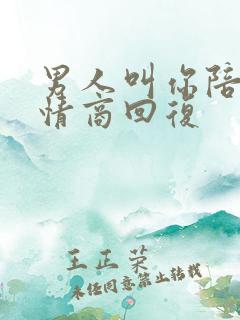 男人叫你陪
情商回復
王正荣
未经同意禁止转载